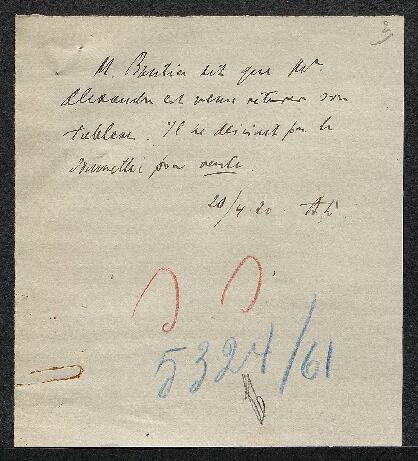 3
M. Bautier dit que Mr
Alexandre est venu retirer son
tableau. Il ne désirait pas le
soumettre pour vente.
20/4 20 AL
5324/61